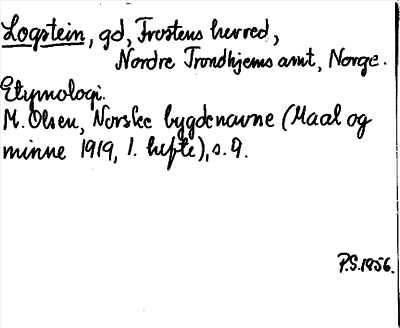 Logstein, gd, Frostens herred,
Nordre Trondhjems amt, Norge.
Etymologi.
M. Olsen, Norske bygdenavne (Maal og
minne 1919, 1. hefte), s. 9.
P.S. 1956.